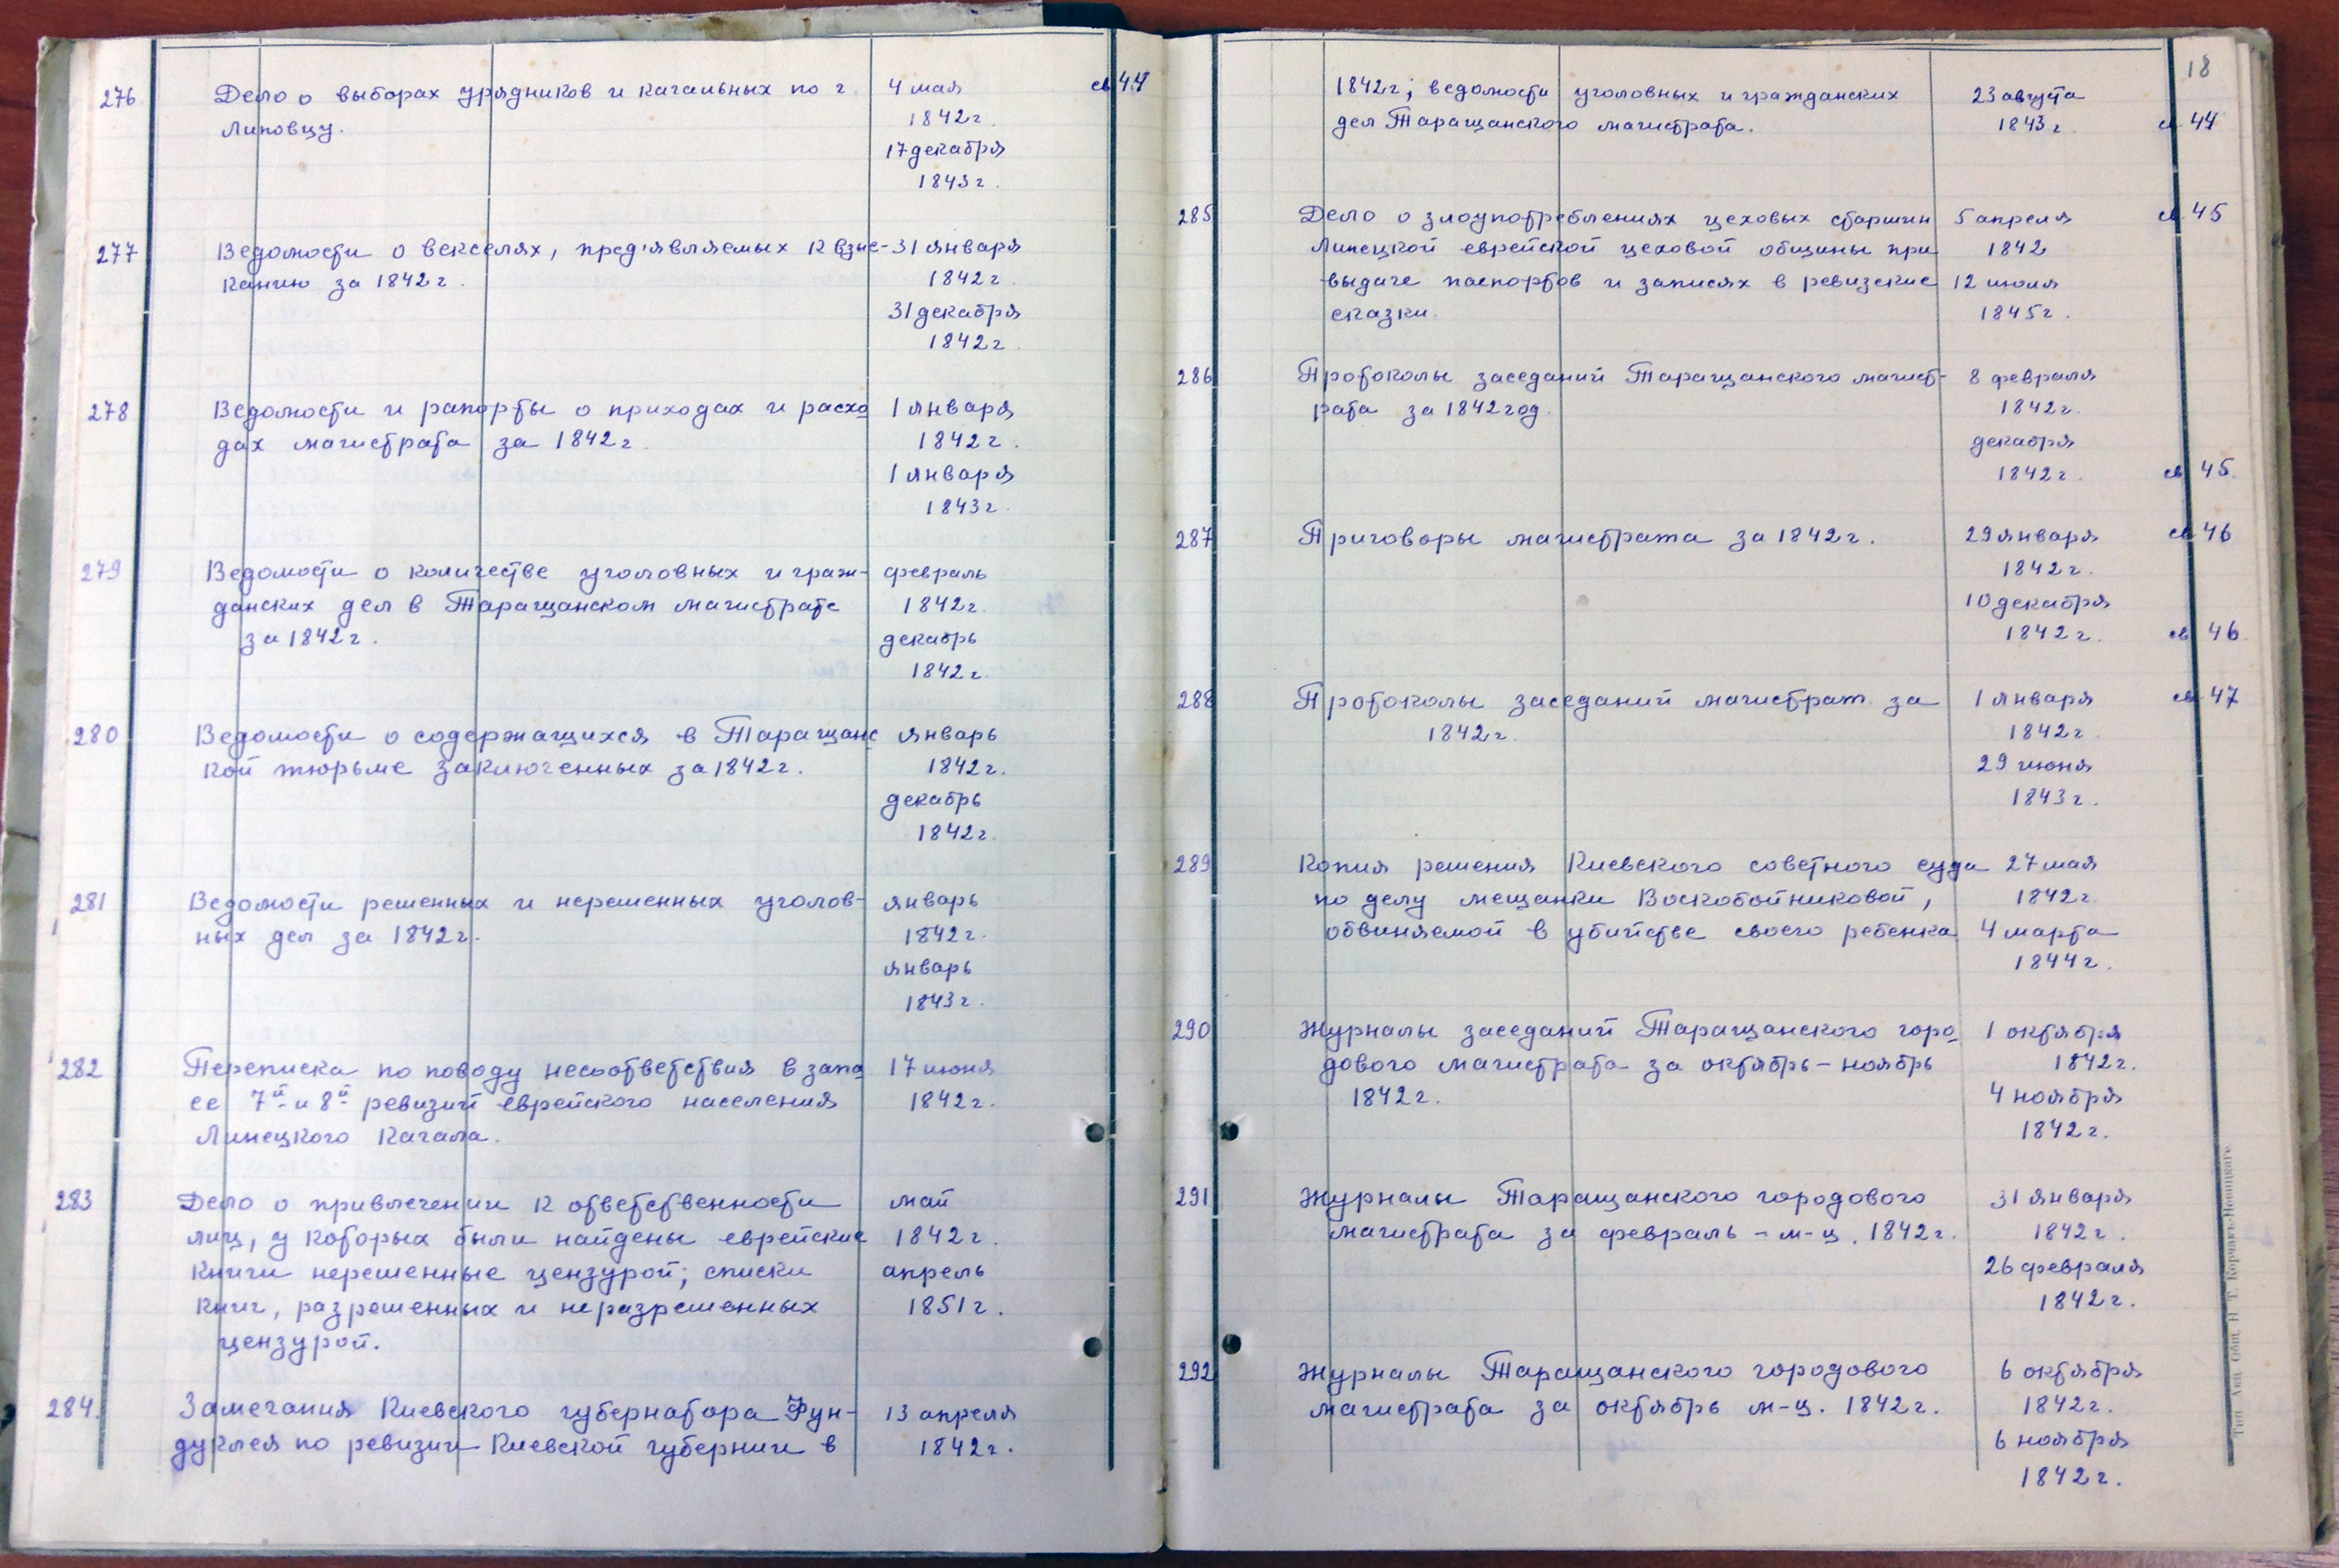 276 Дело о выборах урядников и кагальных по г. 4 мая св 44
Липовцу. 1842 г.
17 декабря
1843 г.
277 Ведомости о векселях, пред'являемых к взыс- 31 января
канию за 1842 г. 1842 г.
31 декабря
1842 г.
278 Ведомости и рапорты о приходах и расхо 1 января
дах магистрата за 1842 г. 1842 г.
1 января
1843 г.
279 Ведомости о количестве уголовных и граж- февраль
данских дел в Таращанском магистрате 1842 г.
за 1842 г. декабрь
1842 г.
280 Ведомости о содержащихся в Таращанс январь
кой тюрьме заключенных за 1842 г. 1842 г.
декабрь
1842 г.
281 Ведомости решенных и нерешенных уголов- январь
ных дел за 1842 г. 1842 г.
январь
1843 г.
282 Переписка по поводу несоответствия в запи 17 июня
се 7й и 8й ревизий еврейского населения 1842 г.
Линецкого Кагала.
283 Дело о привлечении к ответственности май
лиц, у которых были найдены еврейские 1842 г.
книги нерешенные цензурой; списки апрель
книг, разрешенных и неразрешенных 1851 г.
цензурой.
284. Замечания Киевского губернатора Фун- 13 апреля
дуклея по ревизии Киевской губернии в 1842 г.
18
1842 г; ведомости уголовных и гражданских 23 августа
дел Таращанского магистрата. 1843 г. св 44
285 Дело о злоупотреблениях цеховых старшин 5 апреля св 45
Линецкой еврейской цеховой общины при 1842
выдаче паспортов и записях в ревизские 12 июля
сказки. 1845 г.
286 Протоколы заседаний Таращанского магист- 8 февраля
рата за 1842 год. 1842 г.
декабря
1842 г. св 45.
287 Приговоры магистрата за 1842 г. 29 января св 46
1842 г.
10 декабря
1842 г. св 46.
288 Протоколы заседаний магистрат. за 1 января св 47
1842 г. 1842 г.
29 июня
1843 г.
289 Копия решения Киевского советного суда 27 мая
по делу мещанки Воскобойниковой, 1842 г.
обвиняемой в убийстве своего ребенка 4 марта
1844 г.
290 Журналы заседаний Таращанского горо 1 октября
дового магистрата за октябрь - ноябрь 1842 г.
1842 г. 4 ноября
1842 г.
291 Журналы Таращанского городового 31 января
магистрата за февраль - м-ц. 1842 г. 1842 г.
26 февраля
1842 г.
292 Журналы Таращанского городового 6 октября
магистрата за октябрь м-ц. 1842 г. 1842 г.
6 ноября
1842 г.
Тип. Акц. Общ. Н. Т. Корчак-Новицкаго